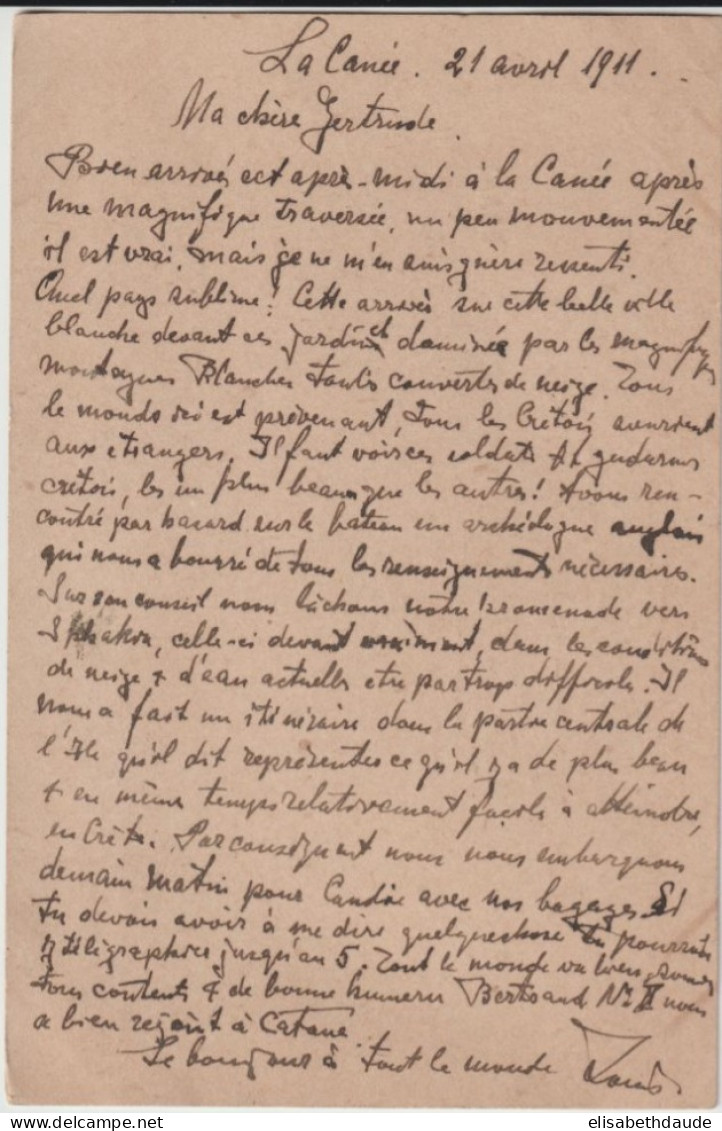 La Canée. 21 avril 1911.
Ma chère Gertrude.
Bien arrivés cet après-midi à la Canée après
une magnifique traversée, un peu mouvementée
il est vrai, mais je ne m'en suis guère ressenti.
Quel pays sublime! Cette arrivée sur cette belle ville
blanche devant ses jardins et dominée par les magnifiques
montagnes Blanches toutes couvertes de neige. Tous
le monde ici est prévenant, tous les Crétois sourient
aux étrangers. Il faut voir ces soldats & gendarmes
crétois, les un plus beau que les autres! Avons ren-
contré par hasard sur le bateau un archéologue anglais
qui nous a bourré de tous les renseignements nécessaires.
Sur son conseil nous lâchons notre promenade vers
Sphakia, celle-ci devant vraiment, dans les conditions
de neige & d'eau actuelles être par trop difficile. Il
nous a fait un itinéraire dans la partie centrale de
l'Ile qu'il dit représenter ce qu'il y a de plus beau
& en même temps relativement facile à atteindre,
en Crète. Par conséquent nous nous embarquons
demain matin pour Candie avec nos bagages. Si
tu devais avoir à me dire quelque chose tu pourrais
y télégraphier jusqu'au 5. Tout le monde va bien, sommes
tous contents & de bonne humeur Bertrand No II nous
a bien rejoint à Catane
Le bonjour à tout le monde Louis
elisabethdaude